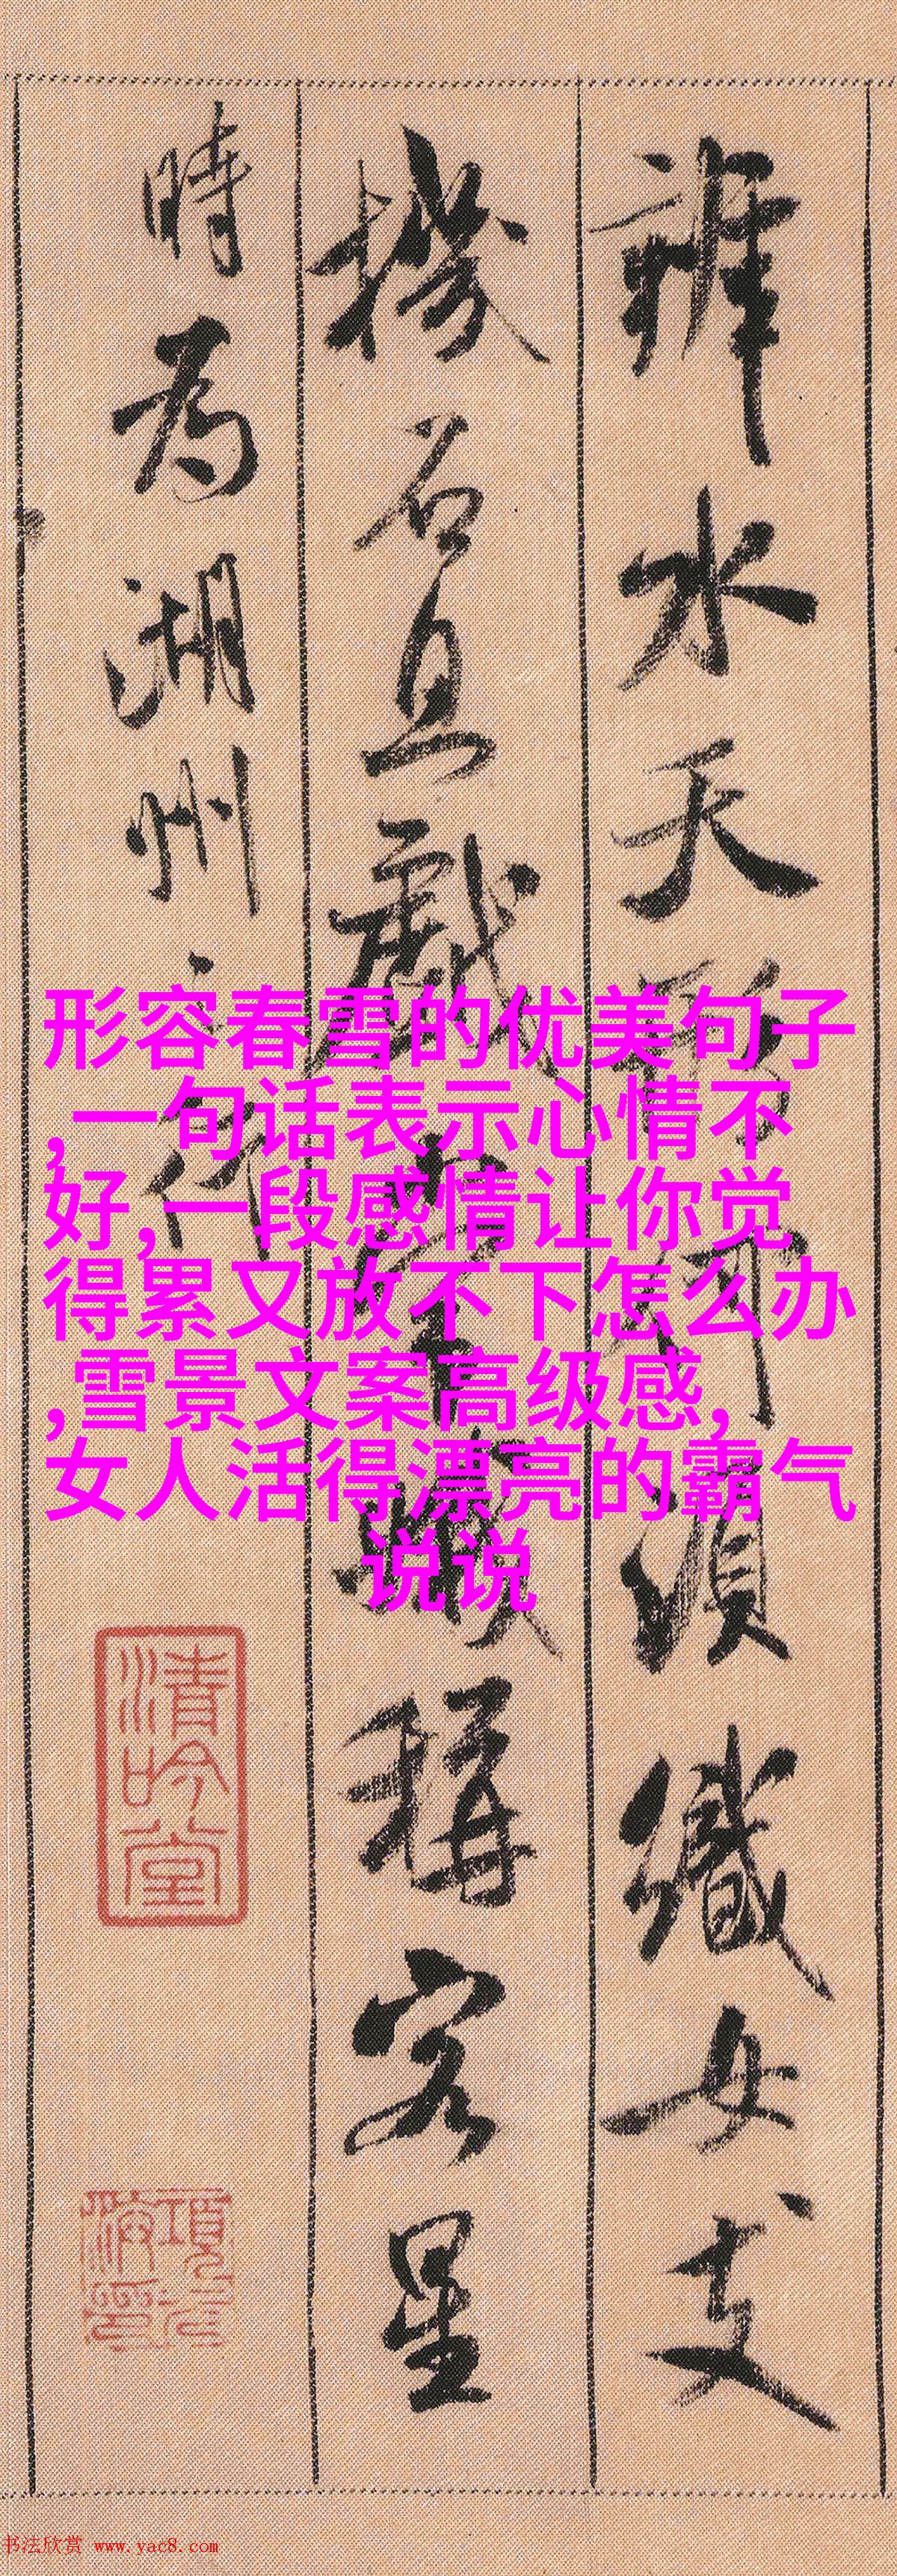 辨水天形何須織女支
機石且戲常娥稱客星
時為湖州之行
形容春雪的优美句子
,一句话表示心情不
好,一段感情让你觉
得累又放不下怎么办
,雪景文案高级感,
女人活得漂亮的霸气
说说
清吟堂
书法欣赏 www.yac8.com